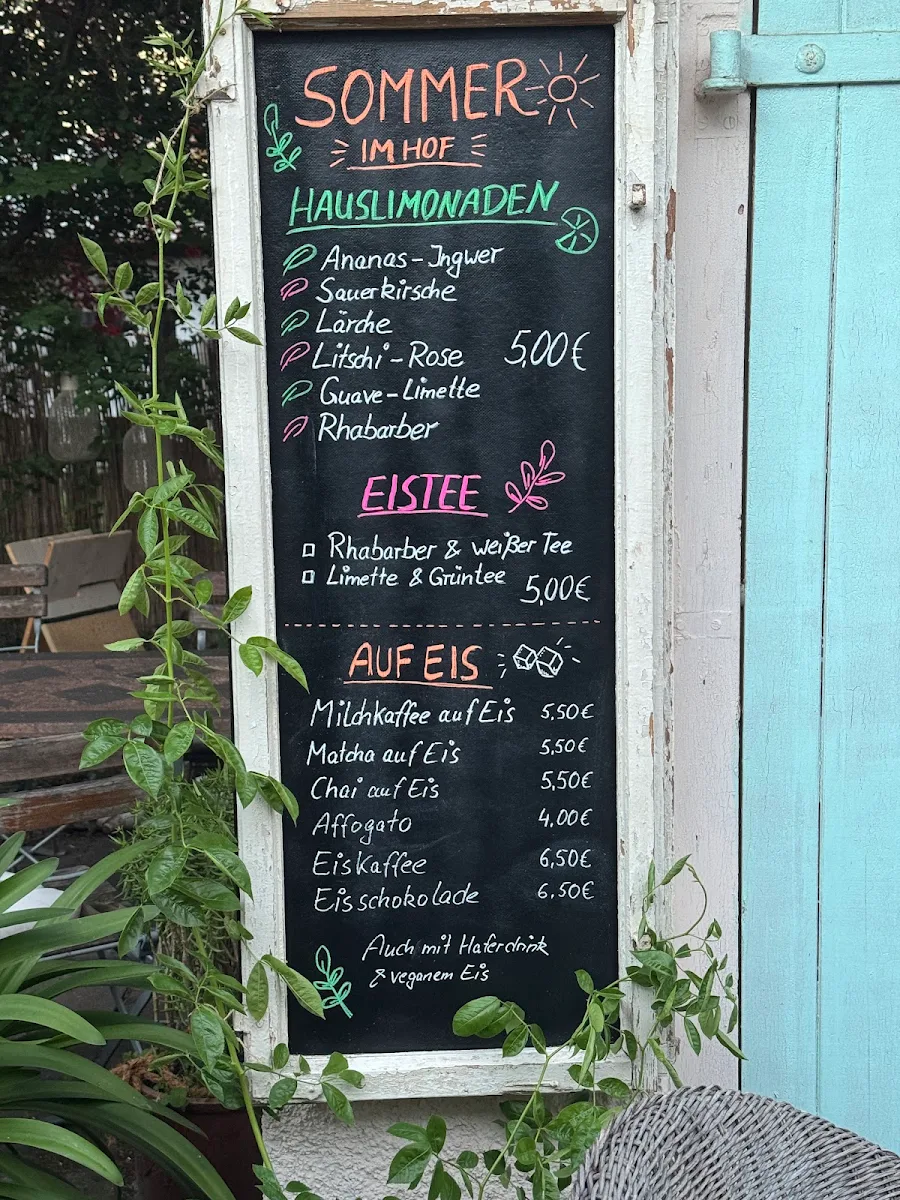 SOMMER
IM HOF
HAUSLIMONADEN
Ananas-Ingwer
Sauerkirsche
Lärche
Litschi-Rose 5,00€
Guave-Limette
Rhabarber
EISTEE
Rhabarber & weißer Tee
Limette & Grüntee
5,00€
AUF EIS
Milchkaffee auf Eis 5,50€
Matcha auf Eis 5,50€
Chai auf Eis 5,50€
Affogato 4,00€
Eiskaffee 6,50€
Eisschokolade 6.50€
Auch mit Haferdrink
& veganem Eis